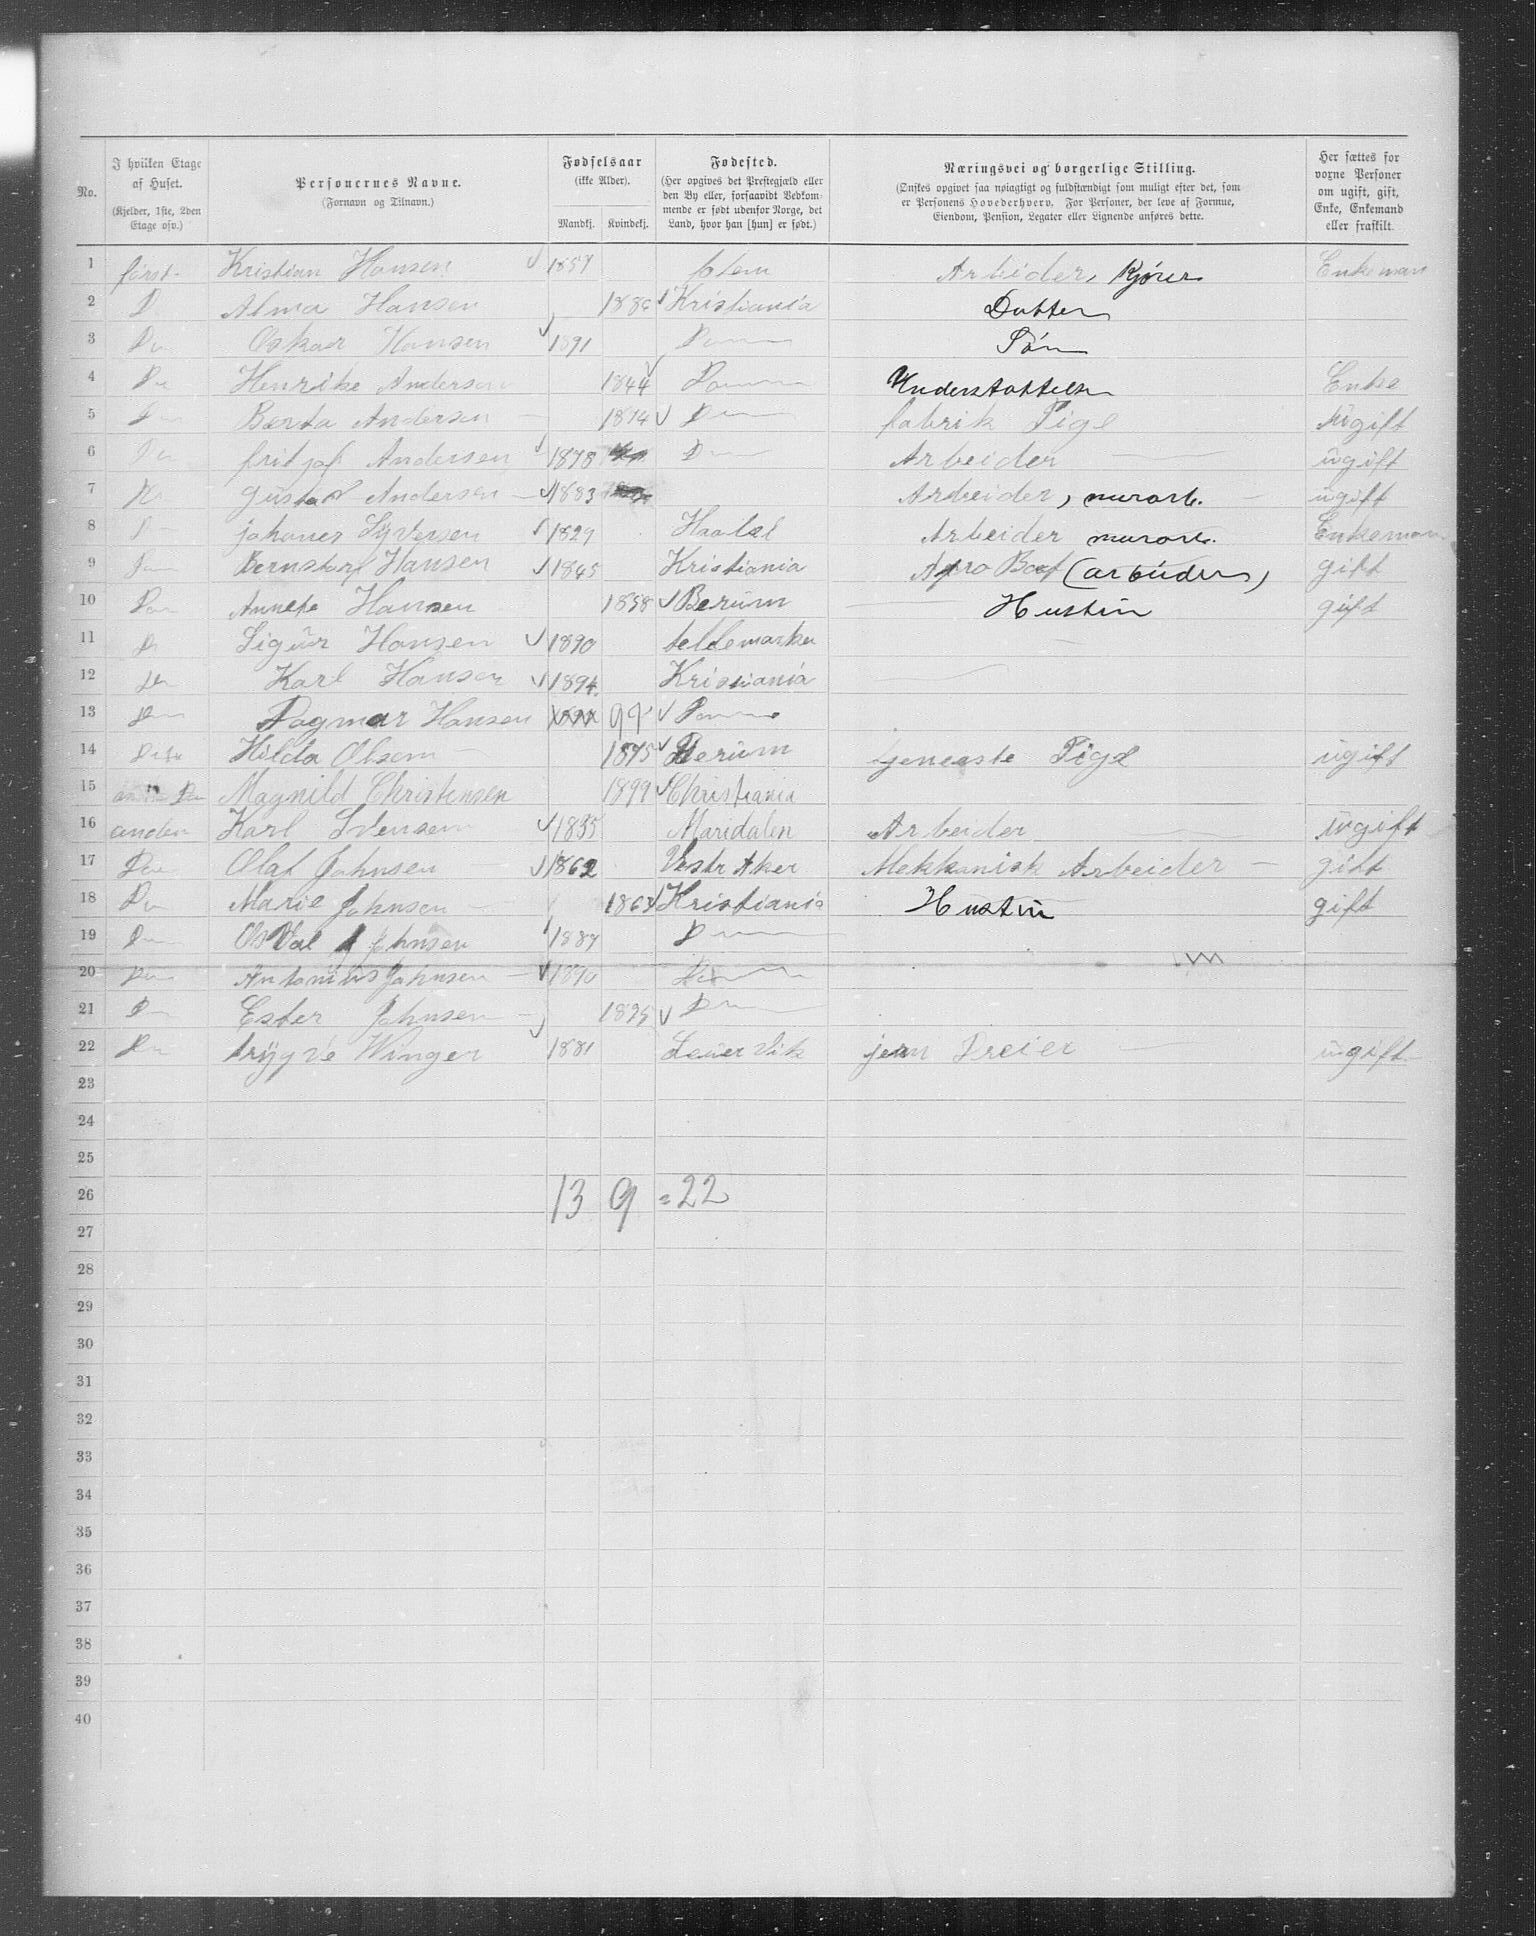 No.
I hvilken Etage
af Huset.
(Kjelder, 1ste, 2den
Etage osv.)
Personernes Navne.
(Fornavn og Tilnavn.)
Fødselsaar
(ikke Alder).
Mandkj. Kvindekj.
Fødested.
(Her opgives det Prestegjæld eller
den By eller, forsaavidt Vedkom-
mende er født udenfor Norge, det
Land, hvor han [hun] er født.)
Næringsvei og borgerlige Stilling.
(Ønskes opgivet saa nøiagtigt og fuldstændigt som muligt efter det, som
er Personens Hovederhverv. For Personer, der leve af Formue,
Eiendom, Pension, Legater eller Lignende anføres dette.
Her sættes for
voxne Personer
om ugift, gift,
Enke, Enkemand
eller fraskilt.
1 først Kristian Hansen 1857 Arbeider, Kjører Enkeman
2 D Alma Hansen 1886 Kristiania Datter
3 Do Oskar Hansen 1891 Do Søn
4 Do Henrike Andersen 1844 Do Understøttelse Enke
5 Do Berta Andersen 1874 D fabrik Pige ugift
6 Do fritjof Andersen 1878 D Arbeider ugift
7 Gustav Andersen 1883 Arbeider, murarb. ugift
8 D johanes Syversen 1829 Arbeider murarb. Enkeman
9 Bernstorf Hansen 1845 Kristiania (arbeider) gift
10 Do Annete Hansen 1858 Berum Hustru gift
11 D Sigur Hansen 1890 tellemarken
12 Do Karl Hansen 1894 Kristiania
13 Do Dagmar Hansen 99 Do
14 Hilda Olsen 1875 Berum tjeneste Pige ugift
15 Do Magnild Christensen 1899 Christiania
16 anden Karl Svensen 1835 Maridalen Arbeider ugift
17 Do Olaf Johnsen 1862 Vestr Aker Mekkanisk Arbeider gift
18 Do Marie Johnsen 1863 Kristiania Hustru gift
19 Do Osval Johnsen 1887 D
20 Do Antonius Johnsen 1890 Do
21 D Ester Johnsen 1895 D
22 Do trygve Winger 1881 jern Dreier ugift
23
24
25
26 13 9 = 22
27
28
29
30
31
32
33
34
35
36
37
38
39
40